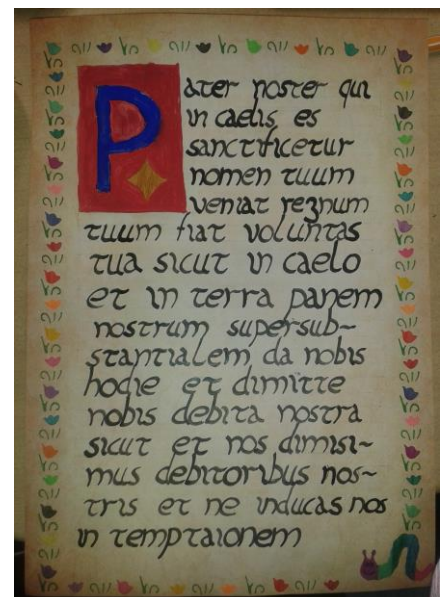 Pater noster qui
in caelis es
sanctificetur
nomen tuum
veniat regnum
tuum fiat voluntas
tua sicut in caelo
et in terra panem
nostrum supersub~
stantialem da nobis
hodie et dimitte
nobis debita nostra
sicut et nos dimisi~
mus debitoribus nos~
tris et ne inducas nos
in temptaionem